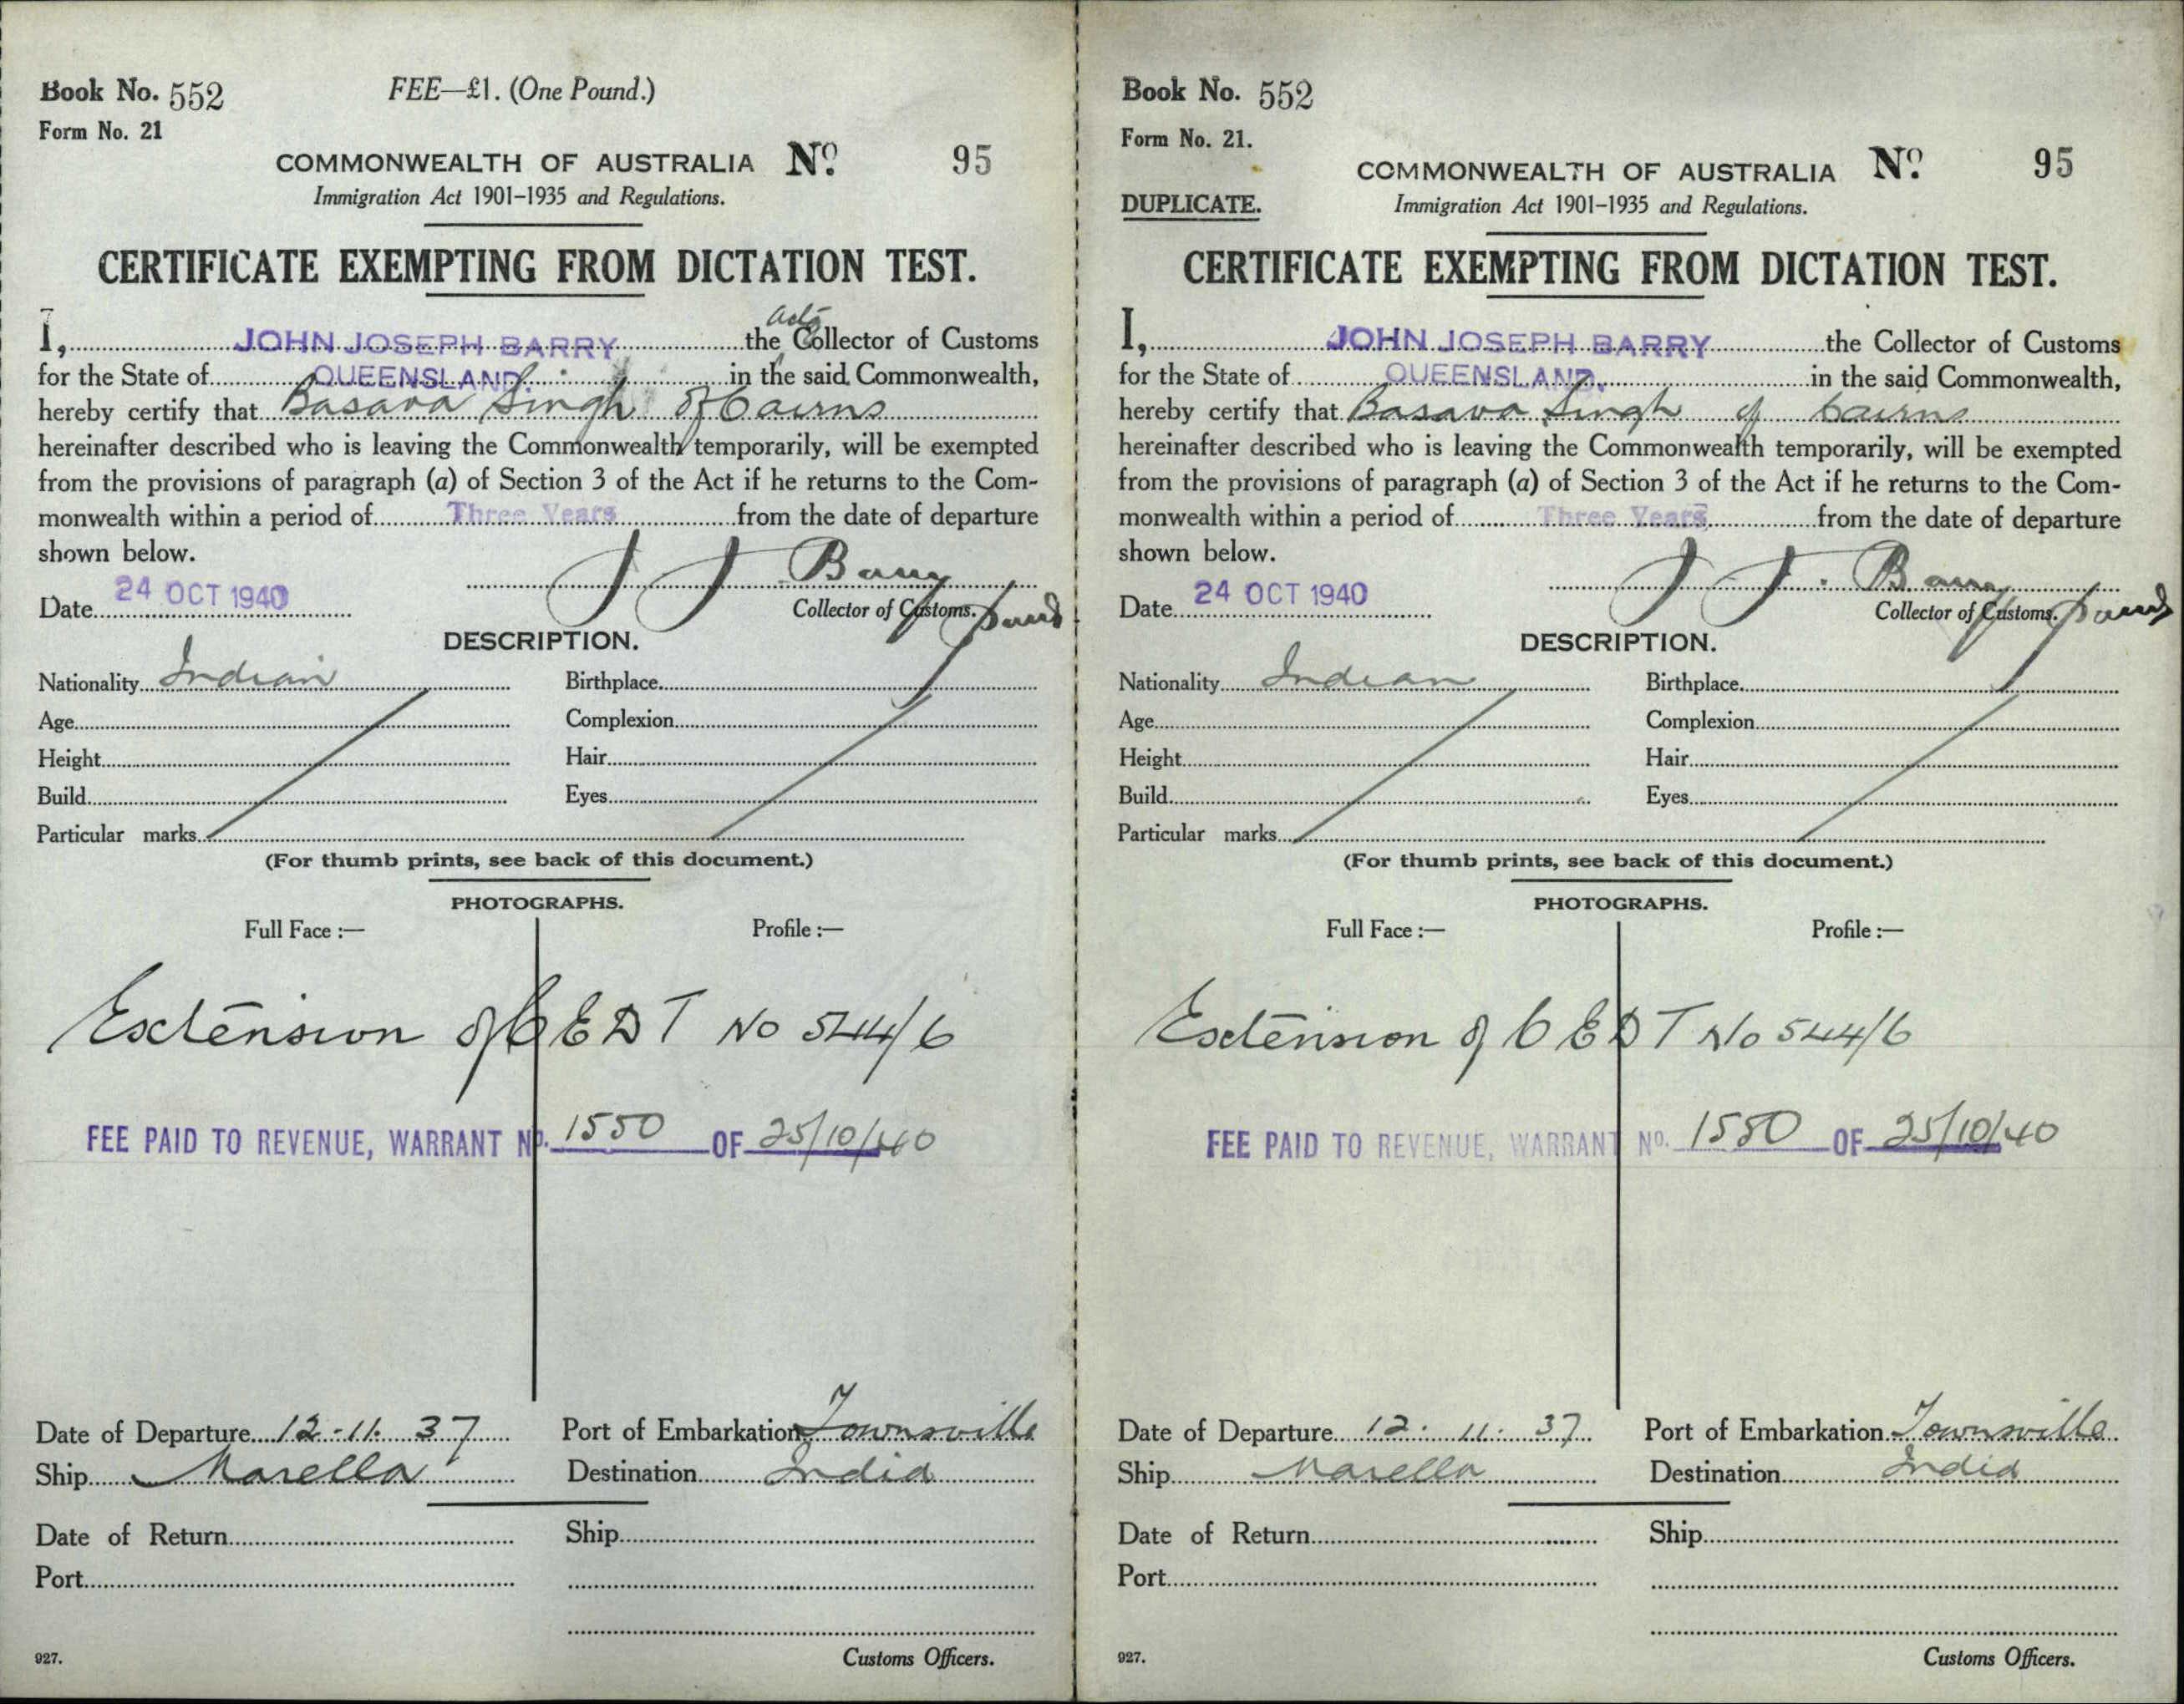 Book No. 552
FEE—£1. (One Pound.)
Form No. 21
COMMONWEALTH OF AUSTRALIA No. 95
Immigration Act 1901–1935 and Regulations.
CERTIFICATE EXEMPTING FROM DICTATION TEST.
I, JOHN JOSEPH BARRY the actg Collector of Customs
for the State of QUEENSLAND. in the said Commonwealth,
hereby certify that Basava Singh of Cairns
hereinafter described who is leaving the Commonwealth temporarily, will be exempted
from the provisions of paragraph (a) of Section 3 of the Act if he returns to the Com-
monwealth within a period of Three Years from the date of departure
shown below.
J J Barry
Date 24 OCT 1940
Collector of Customs.
DESCRIPTION.
Nationality Indian Birthplace
Age Complexion
Height Hair
Build Eyes
Particular marks
(For thumb prints, see back of this document.)
PHOTOGRAPHS.
Full Face :— Profile :—
Extension of CEDT No 544/6
FEE PAID TO REVENUE, WARRANT No. 1550 OF 25/10/40
Date of Departure 12-11. 37 Port of Embarkation Townsville
Ship Marella Destination India
Date of Return Ship
Port
927. Customs Officers.
Book No. 552
Form No. 21.
COMMONWEALTH OF AUSTRALIA No. 95
DUPLICATE.
Immigration Act 1901–1935 and Regulations.
CERTIFICATE EXEMPTING FROM DICTATION TEST.
I, JOHN JOSEPH BARRY the Collector of Customs
for the State of QUEENSLAND. in the said Commonwealth,
hereby certify that Basava Singh of Cairns
hereinafter described who is leaving the Commonwealth temporarily, will be exempted
from the provisions of paragraph (a) of Section 3 of the Act if he returns to the Com-
monwealth within a period of Three Years from the date of departure
shown below.
J. J. Barry
Date 24 OCT 1940
Collector of Customs.
DESCRIPTION.
Nationality Indian Birthplace
Age Complexion
Height Hair
Build Eyes
Particular marks
(For thumb prints, see back of this document.)
PHOTOGRAPHS.
Full Face :— Profile :—
Extension of CEDT No 544/6
FEE PAID TO REVENUE, WARRANT No. 1550 OF 25/10/40
Date of Departure 12. 11. 37 Port of Embarkation Townsville
Ship Marella Destination India
Date of Return Ship
Port
927. Customs Officers.